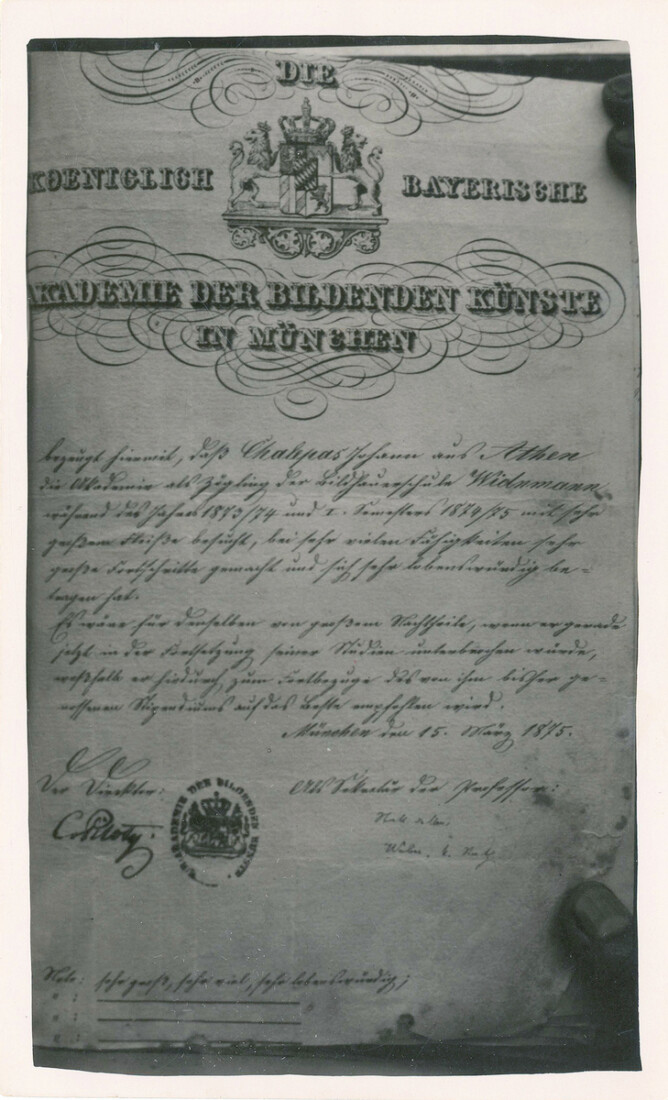 DIE
KOENIGLICH BAYERISCHE
AKADEMIE DER BILDENDEN KÜNSTE
IN MÜNCHEN
bezeugt hiermit, daß Chalepas Johann aus Athen
die Akademie als Zögling der Bildhauerschule Widnmann
während des Jahres 1873/74 und I. Semesters 1874/75 mit sehr
großem Fleiße besucht, bei sehr vielen Fähigkeiten sehr
große Fortschritte gemacht und sich sehr lobenswürdig be-
tragen hat.
Es wäre für denselben von großem Nachtheile, wenn er gerade
jetzt in der Fortsetzung seiner Studien unterbrochen würde,
weßhalb er hiedurch zum Fortbezuge des von ihm bisher ge-
nossenen Stipendiums auf das beste empfohlen wird.
München den 15. März 1875.
Der Direktor: Als Sekretär der Professor:
C. Piloty.
AKADEMIE DER BILDENDEN KÜNSTE
Note: sehr groß, sehr viel, sehr lobenswürdig;
" :
" :
" :